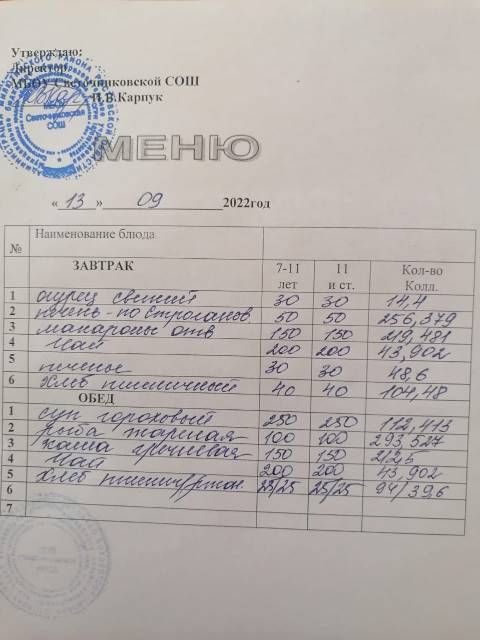 Утверждаю:
Директор
МБОУ Светочниковской СОШ
Н.В.Карпук
Светочниковская
СОШ
МЕНЮ
« 13 » 09 2022год
№ Наименование блюда
ЗАВТРАК 7-11 лет 11 и ст. Кол-во Колл.
1 огурец свежий 30 30 14,4
2 печень-по Строганов 50 50 256,379
3 макароны отв 150 150 219,481
4 Чай 200 200 43,902
5 печенье 30 30 48,6
6 Хлеб пшеничный 40 40 104,48
ОБЕД
1 суп гороховый 250 250 112,413
2 рыба жареная 100 100 293,527
3 каша гречневая 150 150 212,5
4 Чай 200 200 43,902
5 Хлеб пшенич/ржан. 25/25 25/25 94/39,6
6
7